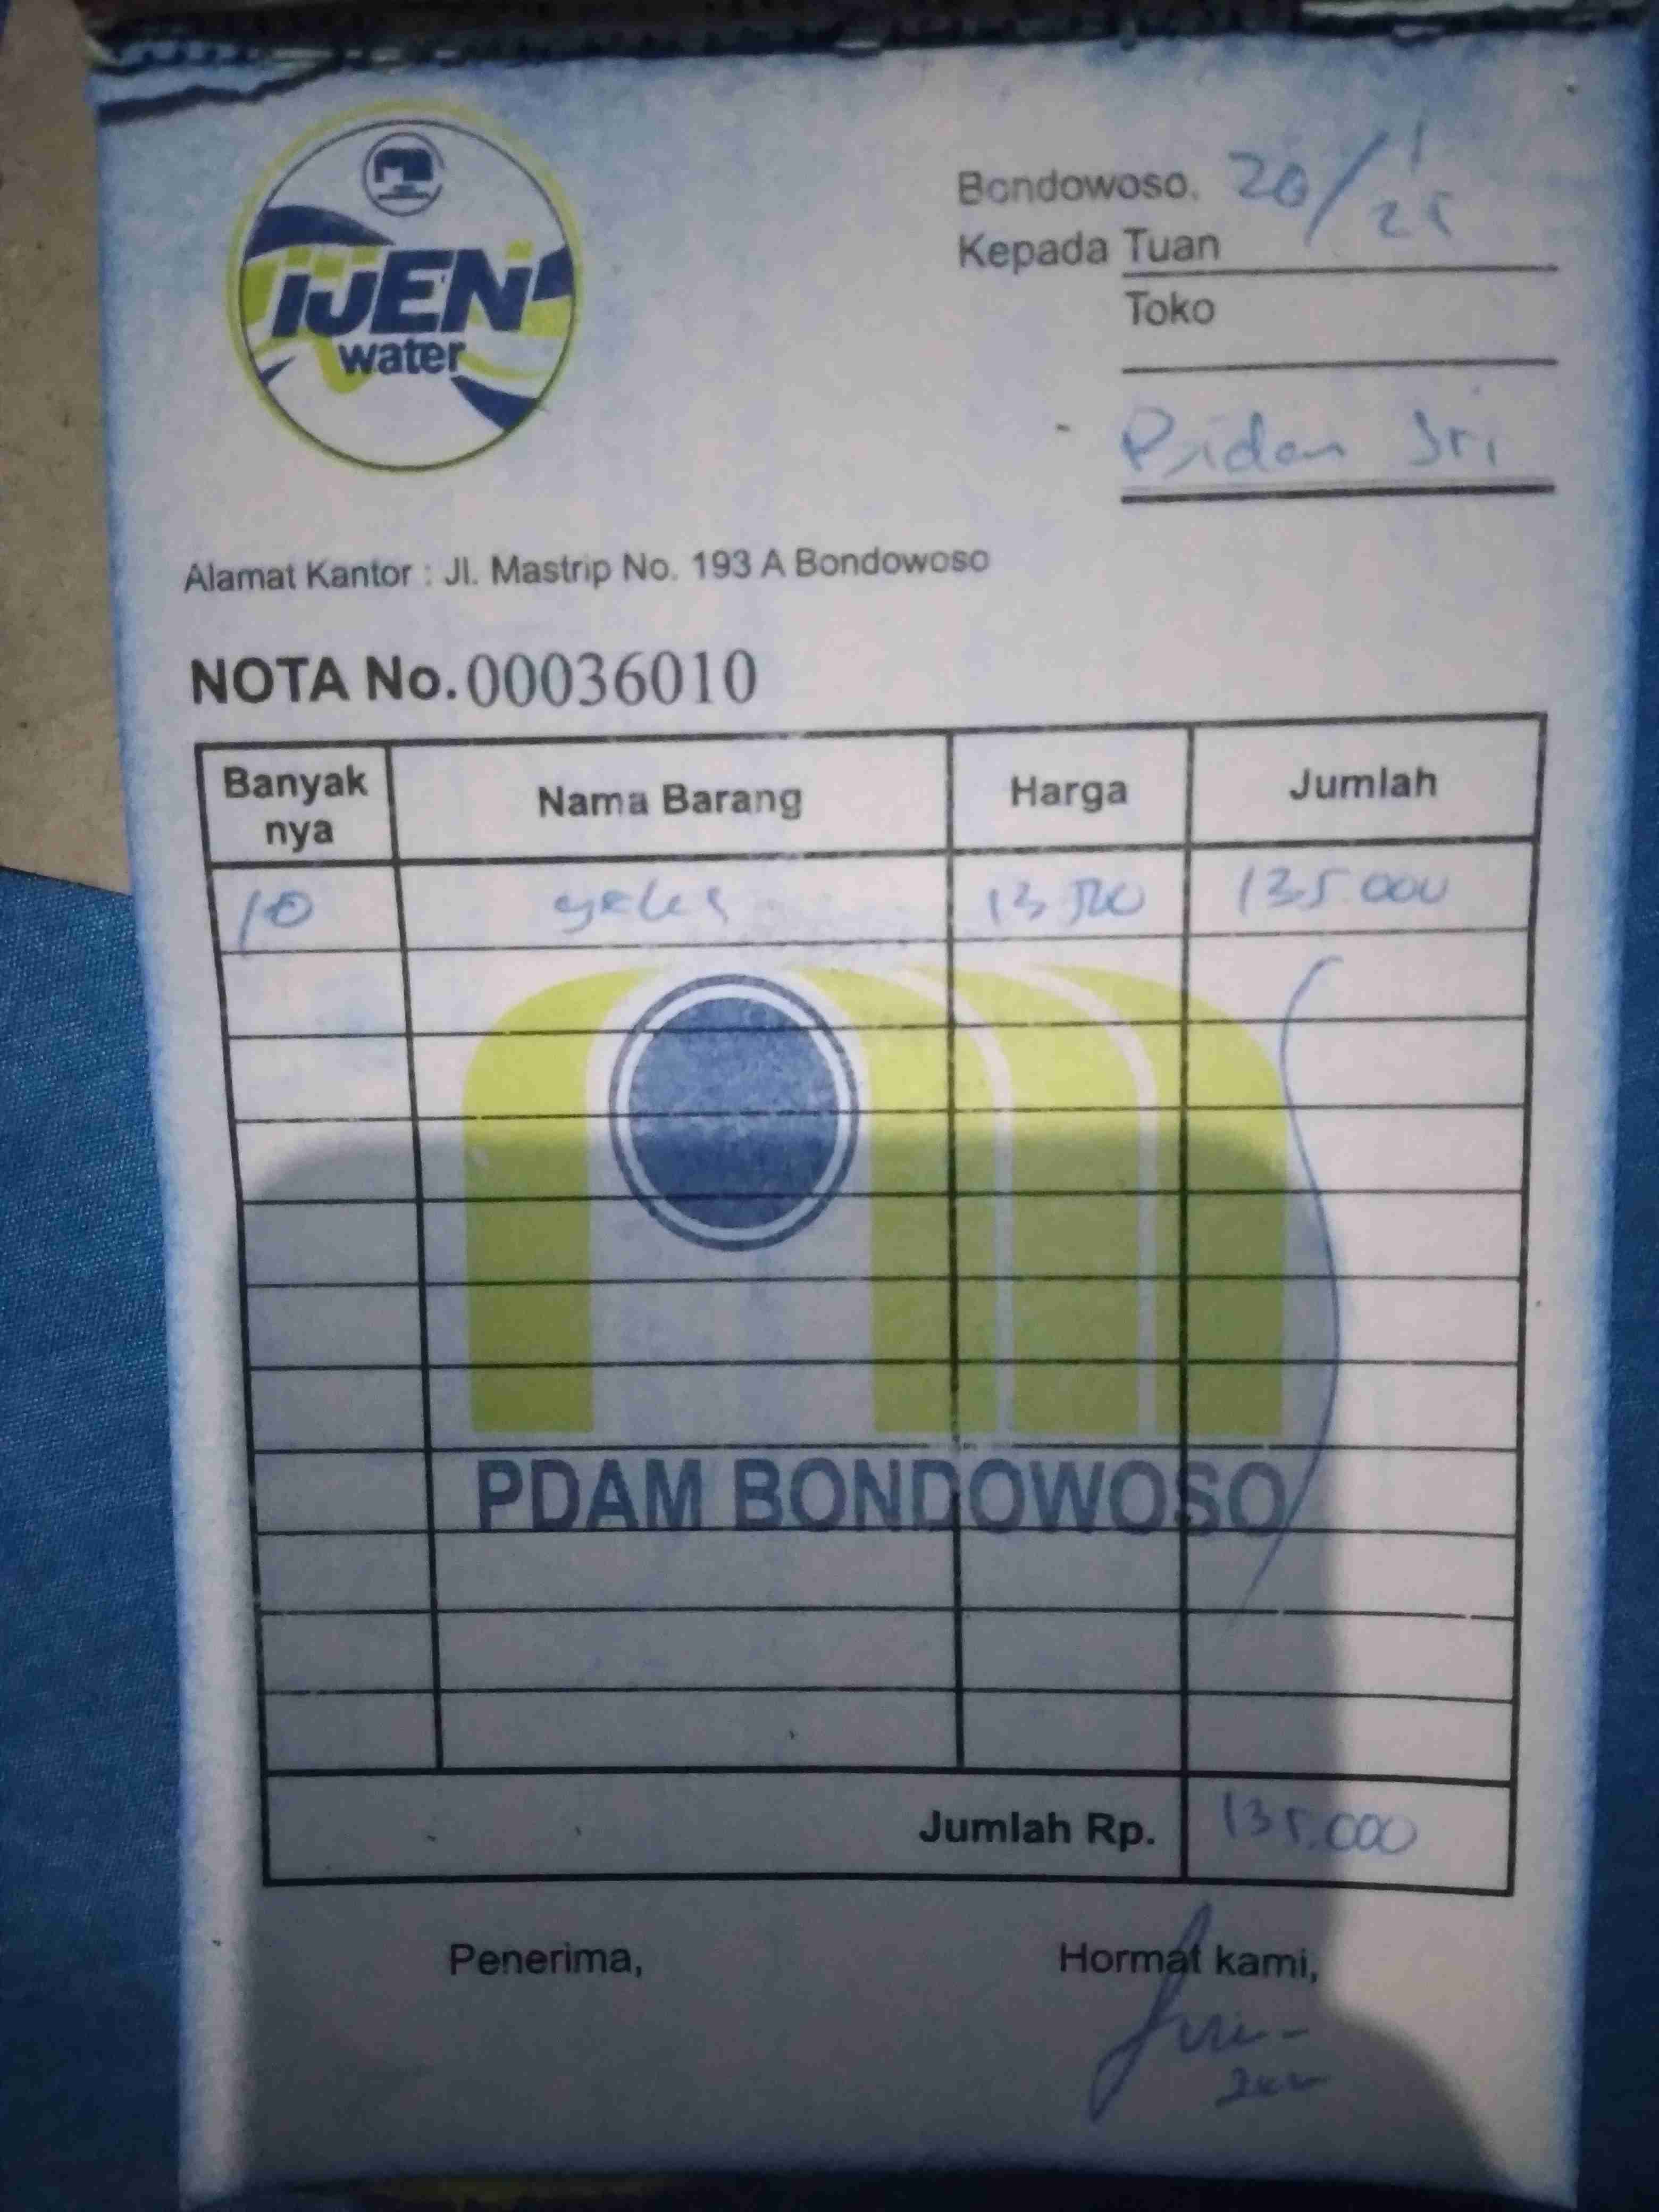 IJEN
water
Bondowoso, 20/1
25
Kepada Tuan
Toko
Bidan Sri
Alamat Kantor : Jl. Mastrip No. 193 A Bondowoso
NOTA No. 00036010
Banyak nya Nama Barang Harga Jumlah
10 gelas 13.500 135.000
PDAM BONDOWOSO
Jumlah Rp. 135.000
Penerima, Hormat kami,